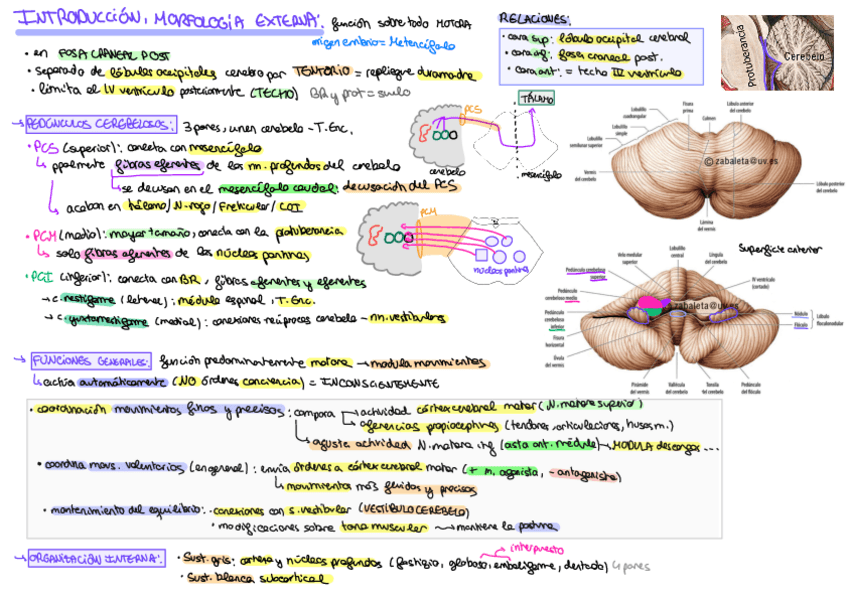 INTRODUCCIÓN, MORFOLOGÍA EXTERNA: función sobre todo MOTORA
origen embrio = Metencéfalo
• en FOSA CRANEAL POST
• separado de lóbulos occipitales cerebro por TENTORIO = repliegue duramadre
• limita el IV ventrículo posteriormente (TECHO) BR y prot = suelo
RELACIONES:
• cara sup: lóbulo occipital cerebral
• cara inf: fosa craneal post.
• cara ant: = techo IV ventrículo
Protuberancia
Cerebelo
→ PEDÚNCULOS CEREBELOSOS: 3 pares, unen cerebelo - T. Enc.
• PCS (superior): conecta con mesencéfalo
↳ ppalmente fibras eferentes de los nn. profundos del cerebelo
↳ se decusan en el mesencéfalo caudal: decusación del PCS
↳ acaban en tálamo / N. rojo / F reticular / COI
PCS
TÁLAMO
cerebelo
mesencéfalo
• PCM (medio): mayor tamaño, conecta con la protuberancia
↳ solo fibras aferentes de los núcleos pontinos
PCM
núcleos pontinos
• PCI (inferior): conecta con BR, fibras aferentes y eferentes
→ c. restiforme (lateral): médula espinal, T. Enc.
→ c. yuxtarrestiforme (medial): conexiones recíprocas cerebelo - nn. vestibulares
Lobulillo cuadrangular
Fisura prima
Culmen
Lóbulo anterior del cerebelo
Lobulillo simple
Lobulillo semilunar superior
Vermis del cerebelo
Lóbulo posterior del cerebelo
Lámina del vermis
© zabaleta@uv.es
Superficie anterior
Vela medular superior
Lobulillo central
Língula del cerebelo
Pedúnculo cerebeloso superior
Pedúnculo cerebeloso medio
Pedúnculo cerebeloso inferior
IV ventrículo (cortado)
zabaleta@uv.es
Nódulo
Flóculo
Lóbulo floculonodular
Fisura horizontal
Úvula del vermis
Pirámide del vermis
Vallécula del cerebelo
Tonsila del cerebelo
Pedúnculo del flóculo
→ FUNCIONES GENERALES: función predominantemente motora → modula movimientos
↳ actúa automáticamente (NO órdenes conciencia) = INCONSCIENTEMENTE
• coordinación movimientos finos y precisos: compara → actividad córtex cerebral motor (N. motora superior)
→ aferencias propioceptivas (tendones, articulaciones, husos m.)
→ ajusta actividad N. motora inf (asta ant. médula) → MODULA descargas ...
• coordina movs. voluntarios (en general): envía órdenes a córtex cerebral motor (+ m. agonista, - antagonista)
↳ movimientos más fluidos y precisos
• mantenimiento del equilibrio: • conexiones con s. vestibular (VESTIBULOCEREBELO)
• modificaciones sobre tono muscular → mantiene la postura
→ ORGANIZACIÓN INTERNA: • Sust. gris: corteza y núcleos profundos (fastigio, globoso, emboliforme, dentado) 4 pares
interpuesto
• Sust. blanca subcortical